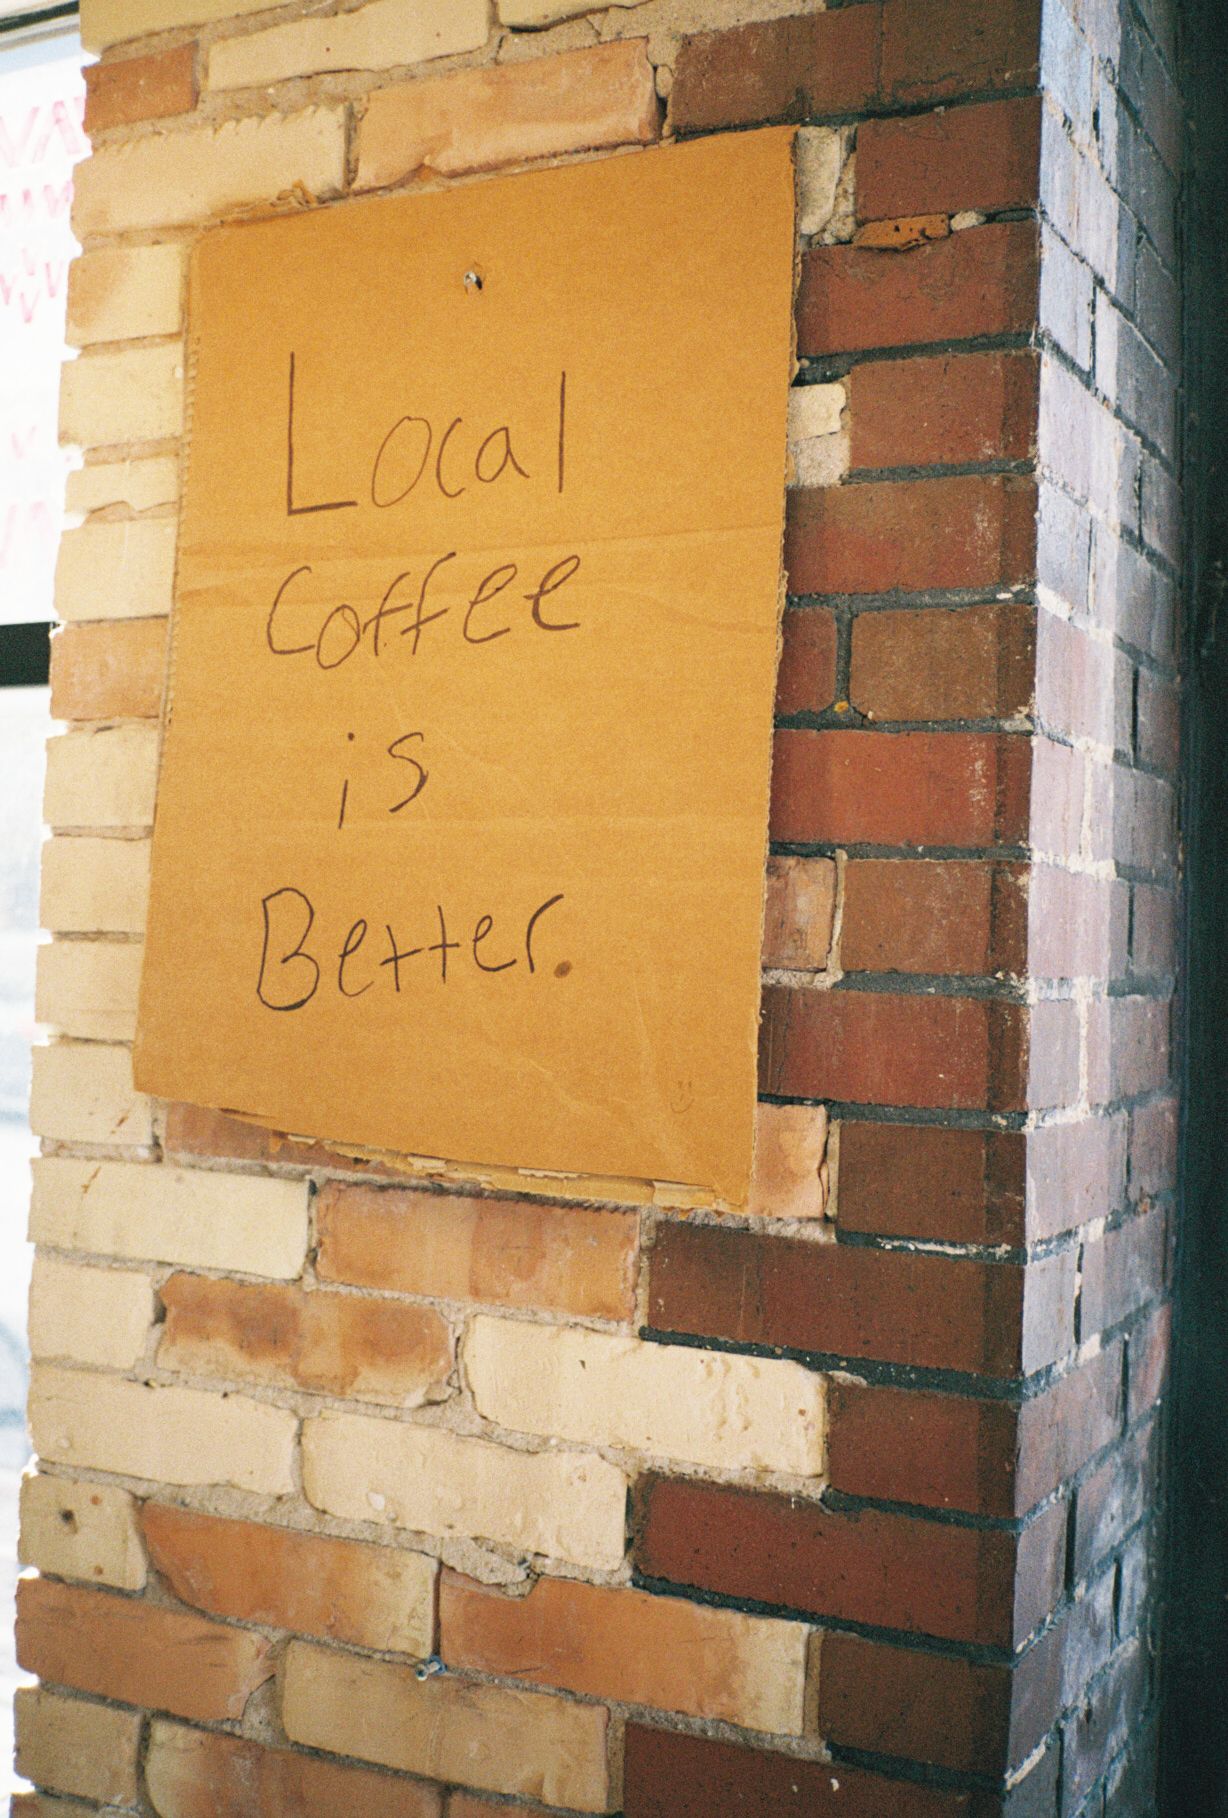 Local
Coffee
is
Better.
:)